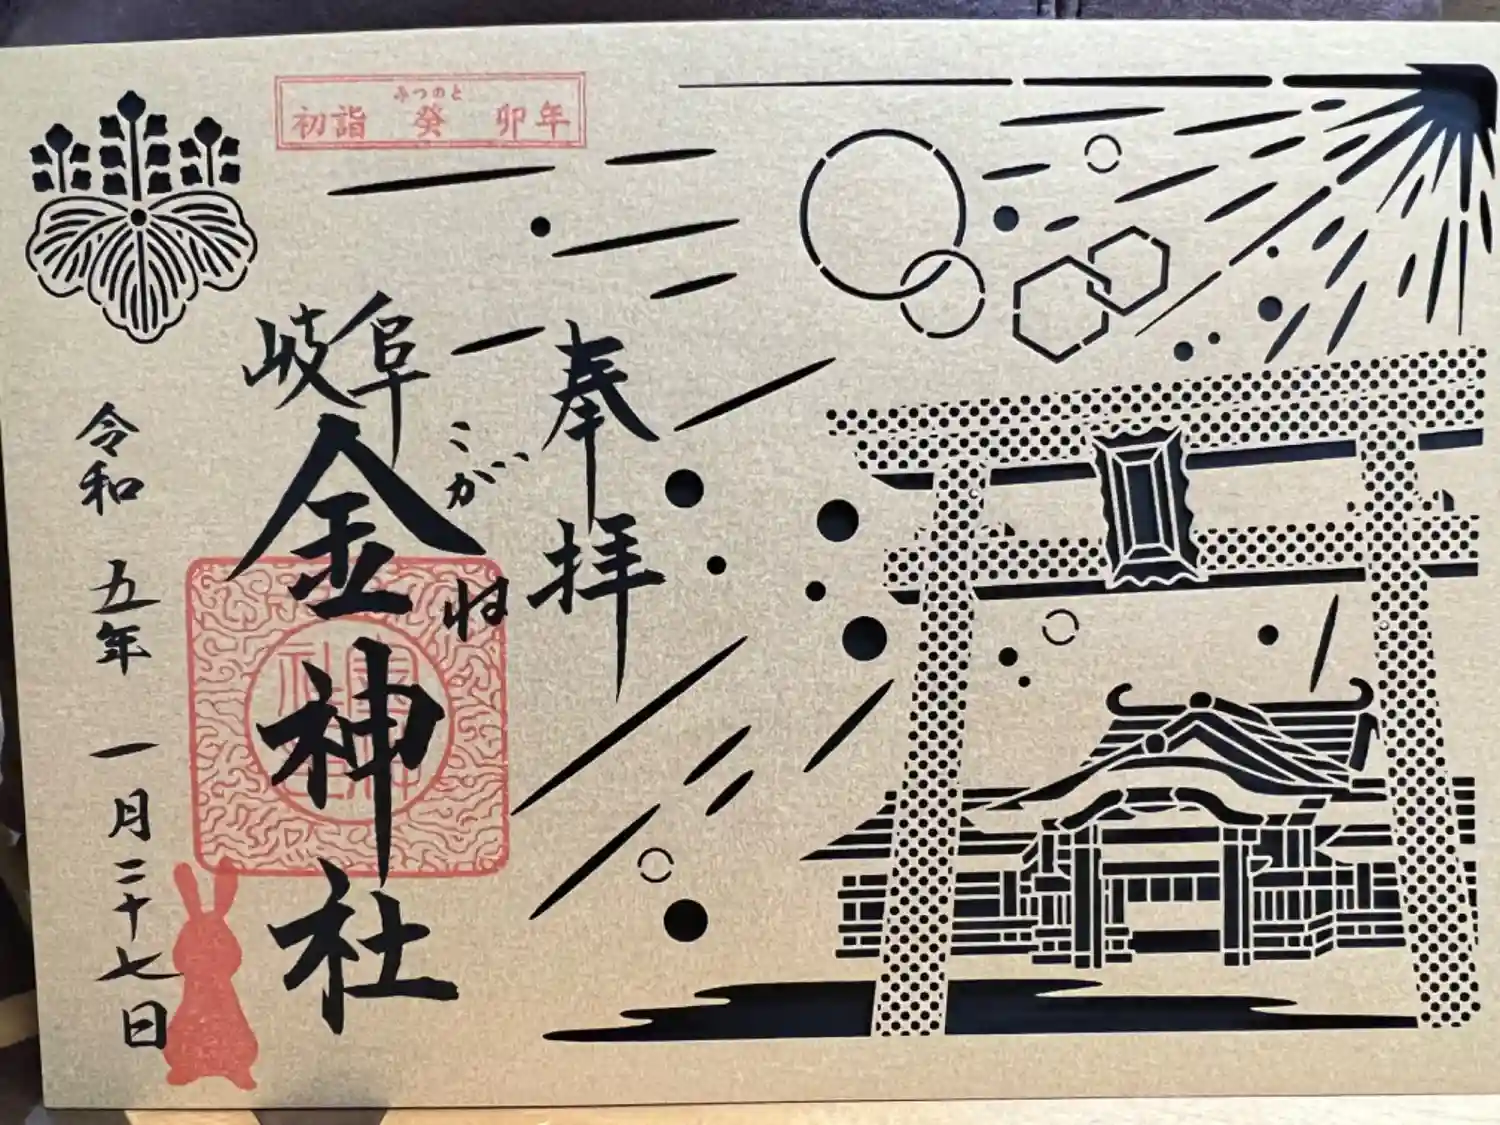 みつのと
初詣 癸 卯年
奉拝
岐阜
こがね
金神社
令和 五年 一月二十七日